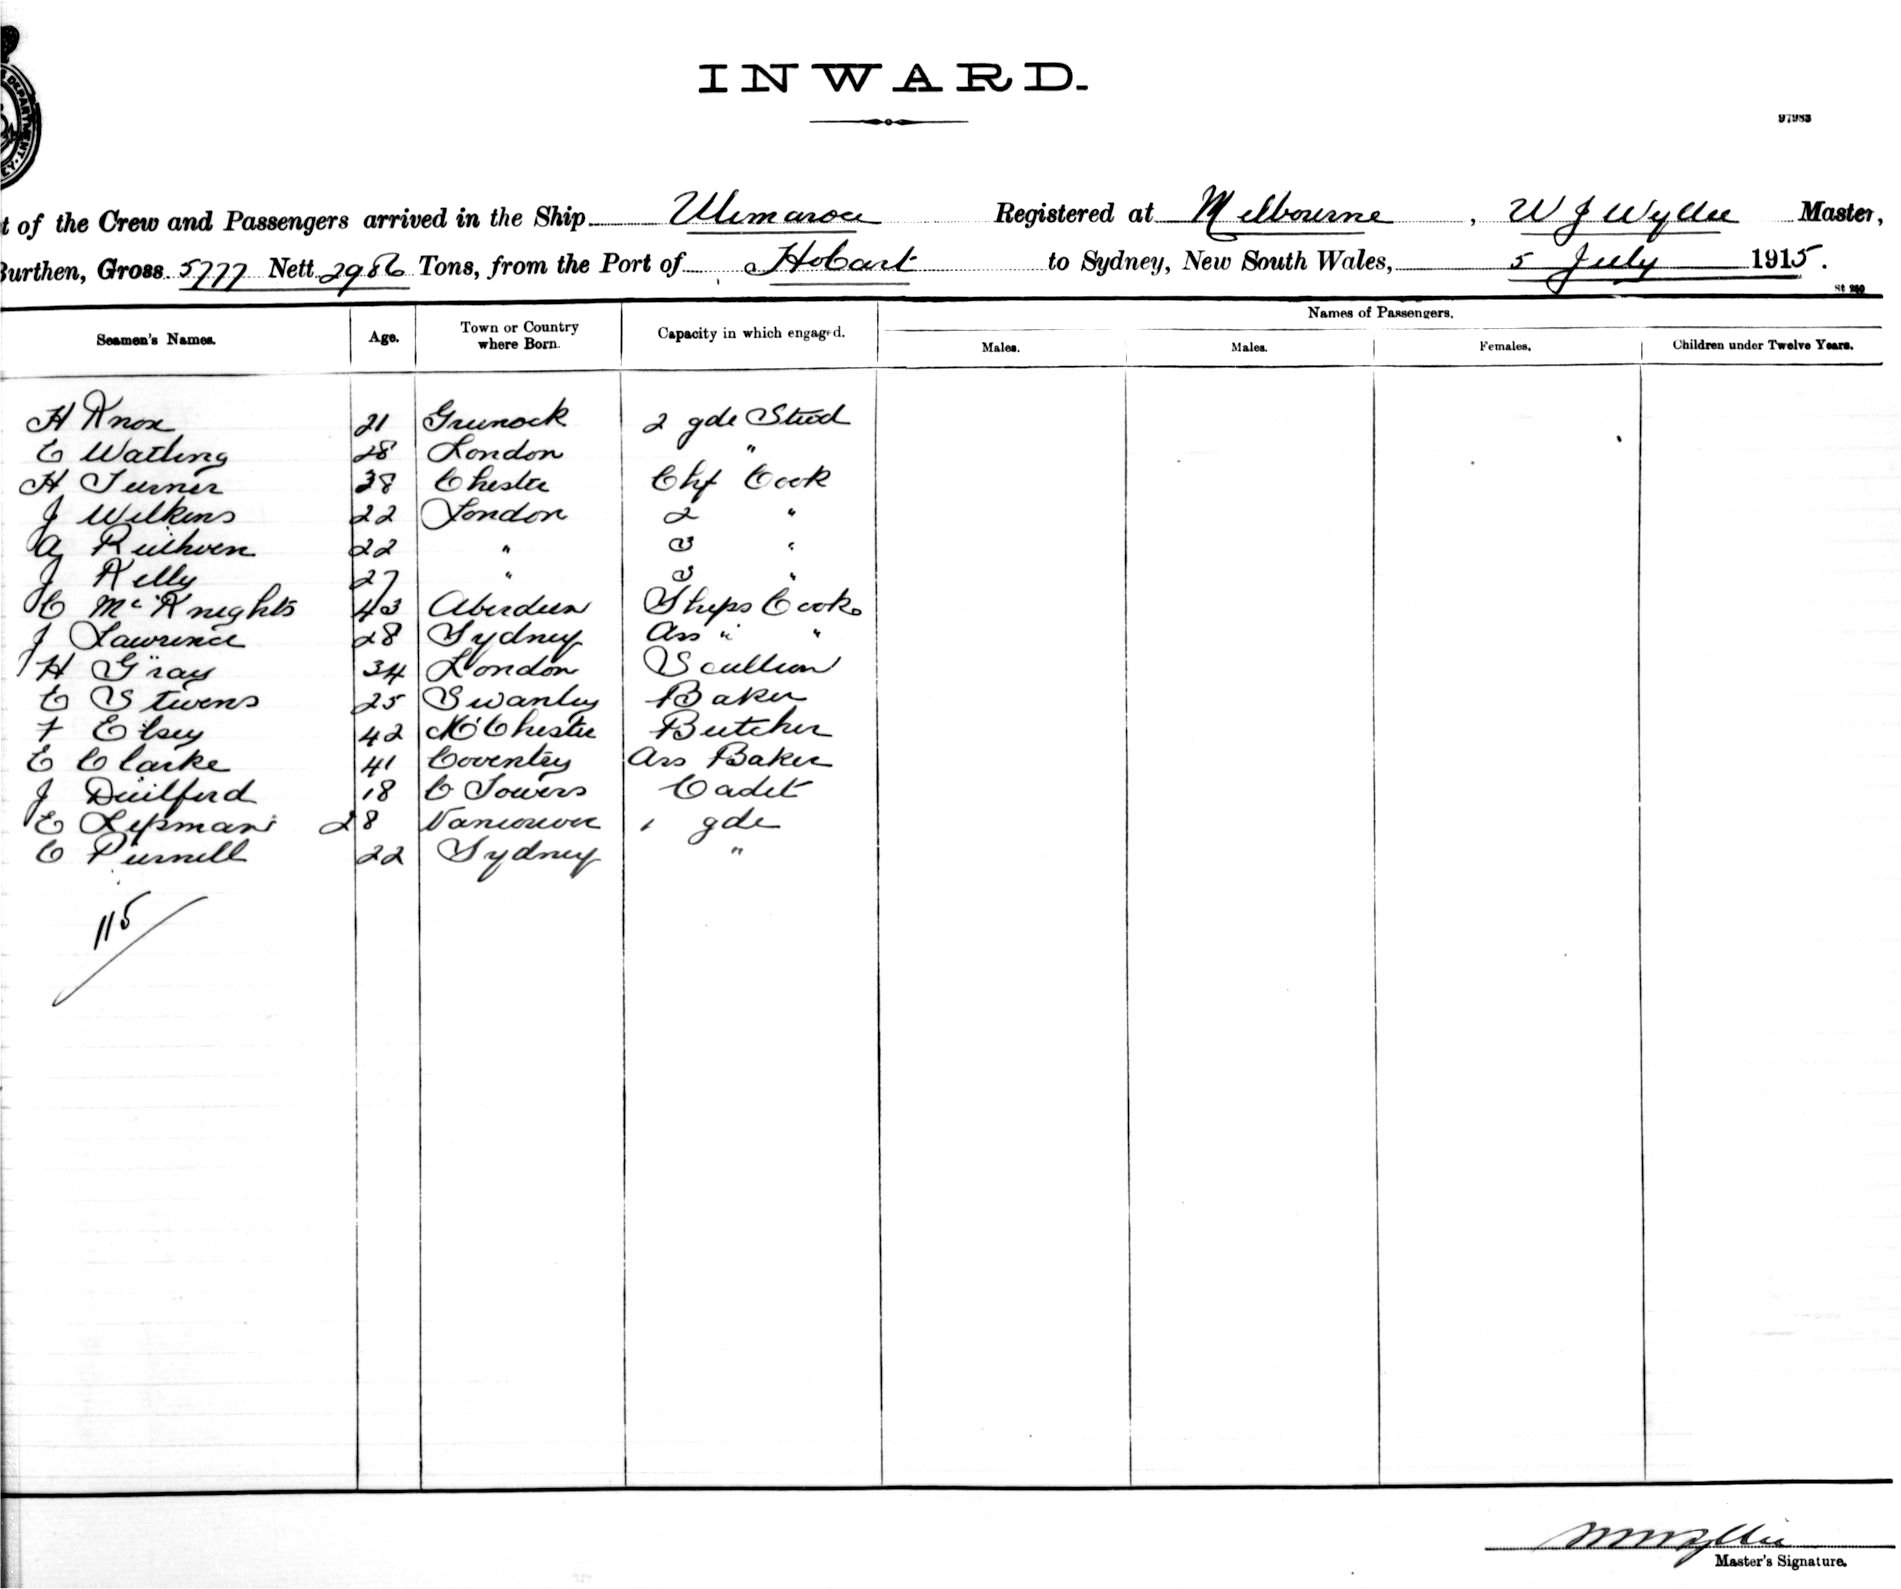 INWARD.
97983
t of the Crew and Passengers arrived in the Ship Ulimaroa Registered at Melbourne, W J Wyllie Master,
Burthen, Gross 5777 Nett 2986 Tons, from the Port of Hobart to Sydney, New South Wales, 5 July 1915.
St 260
Names of Passengers.
Seamen's Names. Age. Town or Country where Born. Capacity in which engaged. Males. Males. Females. Children under Twelve Years.
H Knox 21 Greenock 2 gde Stwd
C Watling 28 London "
H Turner 38 Chester Chf Cook
J Wilkins 22 London 2 "
A Ruthven 22 " 3 "
J Kelly 27 " 3 "
C McKnights 43 Aberdeen Ships Cook
J Lawrence 28 Sydney Ass " "
H Gray 34 London Scullion
C Stivens 25 Swanley Baker
F Elsey 42 M'Chester Butcher
E Clarke 41 Coventry Ass Baker
J Duilford 18 C Towers Cadet
E Lipman 28 Vancouver 1 gde
C Purnell 22 Sydney "
115
Master's Signature.